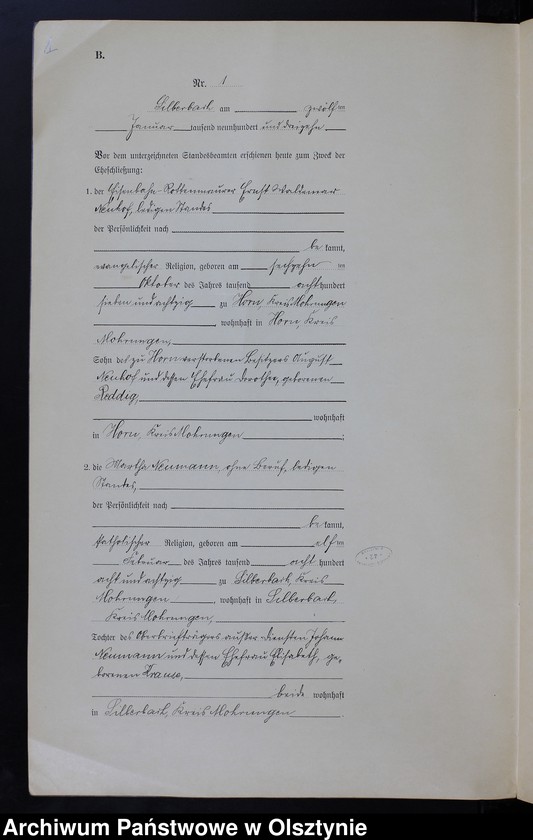 B.
Nr. 1
Silberbach am zwölften
Januar tausend neunhundert und dreizehn
Vor dem unterzeichneten Standesbeamten erschienen heute zum Zweck der
Eheschließung:
1. der Eisenbahn-Rottenmaurer Ernst Waldemar
Neuhof, ledigen Standes
der Persönlichkeit nach
be kannt,
evangelischer Religion, geboren am sechzehn ten
Oktober des Jahres tausend acht hundert
sieben und achtzig zu Horn, Kreis Mohrungen
wohnhaft in Horn, Kreis
Mohrungen,
Sohn des zu Horn verstorbenen Besitzers August
Neuhof und dessen Ehefrau Dorothea, geborenen
Reddig,
wohnhaft
in Horn, Kreis Mohrungen.
2. die Martha Neumann, ohne Beruf, ledigen
Standes,
der Persönlichkeit nach
be kannt,
katholischer Religion, geboren am elf ten
Februar des Jahres tausend acht hundert
acht und achtzig zu Silberbach, Kreis
Mohrungen, wohnhaft in Silberbach,
Kreis Mohrungen,
Tochter des Oberbriefträgers außer Diensten Johann
Neumann und dessen Ehefrau Elisabeth, ge-
borenen Krause,
beide wohnhaft
in Silberbach, Kreis Mohrungen.
Archiwum Państwowe w Olsztynie